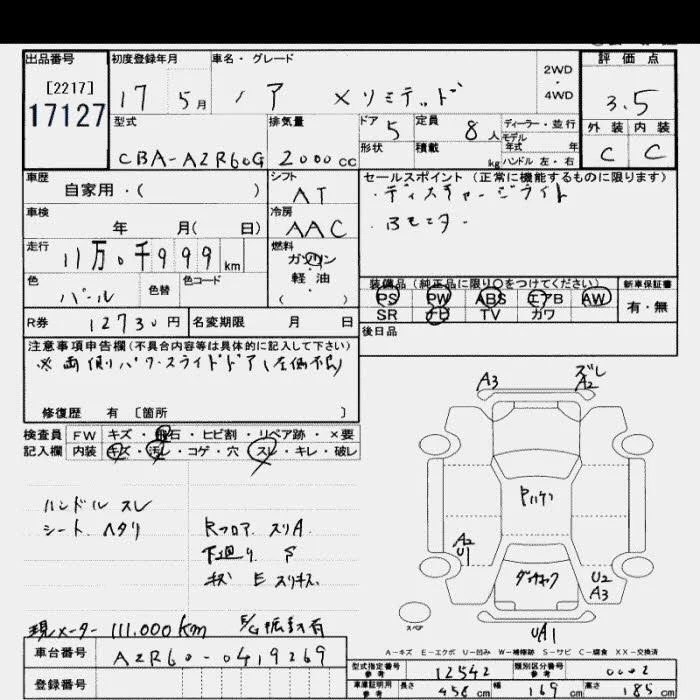 出品番号 初度登録年月 車名・グレード 評価点
[2217]
17127
17 5月 ノア X リミテッド 2WD・4WD 3.5
型式 排気量 ドア 5 定員 8人 ディーラー・並行 外装 内装
CBA-AZR60G 2000cc 形状 積載 kg モデル年式 年 ハンドル 左・右 C C
車歴 シフト セールスポイント (正常に機能するものに限ります)
自家用・( ) AT ・ディスチャージライト
車検 冷房 ・Bモニター
年 月( 日) AAC
走行 11万0千999km 燃料 ガソリン
軽・油
( )
色 パール 色替 色コード 装備品 (純正品に限り○をつけてください) 新車保証書
PS PW ABS エアB AW 有・無
SR ナビ TV カワ
R券 12730円 名変期限 月 日 後日品
注意事項申告欄(不具合内容等は具体的に記入して下さい)
※両側パワースライドドア(左側不良)
修復歴 有 [箇所 ]
検査員 FW キズ・飛石・ヒビ割・リペア跡・×要
記入欄 内装 キズ・汚レ・コゲ・穴・スレ・キレ・破レ
A3 ズレ A2
ハンドル スレ
シート ヘタリ
Rフロア スリA
下廻り S
E スリキズ
Pハゲン
A2
U1
U2
A3
スペア
UA1
現メーター 111.000km
A-キズ E-エクボ U-凹み W-補修跡 S-サビ C-腐食 XX-交換済
車台番号 AZR60-0419269
登録番号
型式指定番号 参考 12542 類別区分番号 参考 0002
車庫証明用 参考 長さ 458cm 幅 169cm 高さ 185cm